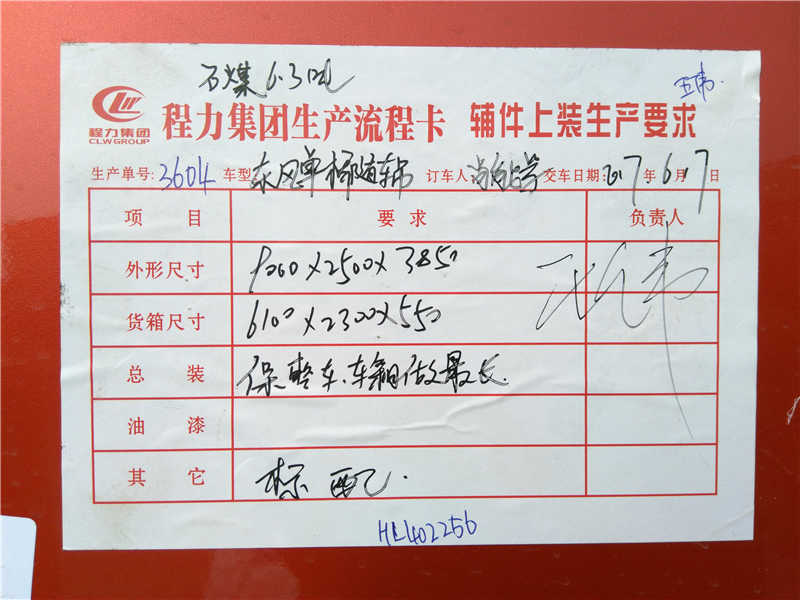 石煤6.3吨
王韦
程力集团 CLWGROUP
程力集团生产流程卡 辅件上装生产要求
生产单号: 3604 车型 东风单桥随车吊 订车人 交车日期: 2017年6月17日
项目 要求 负责人
外形尺寸 9000×2500×3850
货箱尺寸 6100×2300×550
总装 保整车、车箱做最长.
油漆
其它 标配.
HL402256